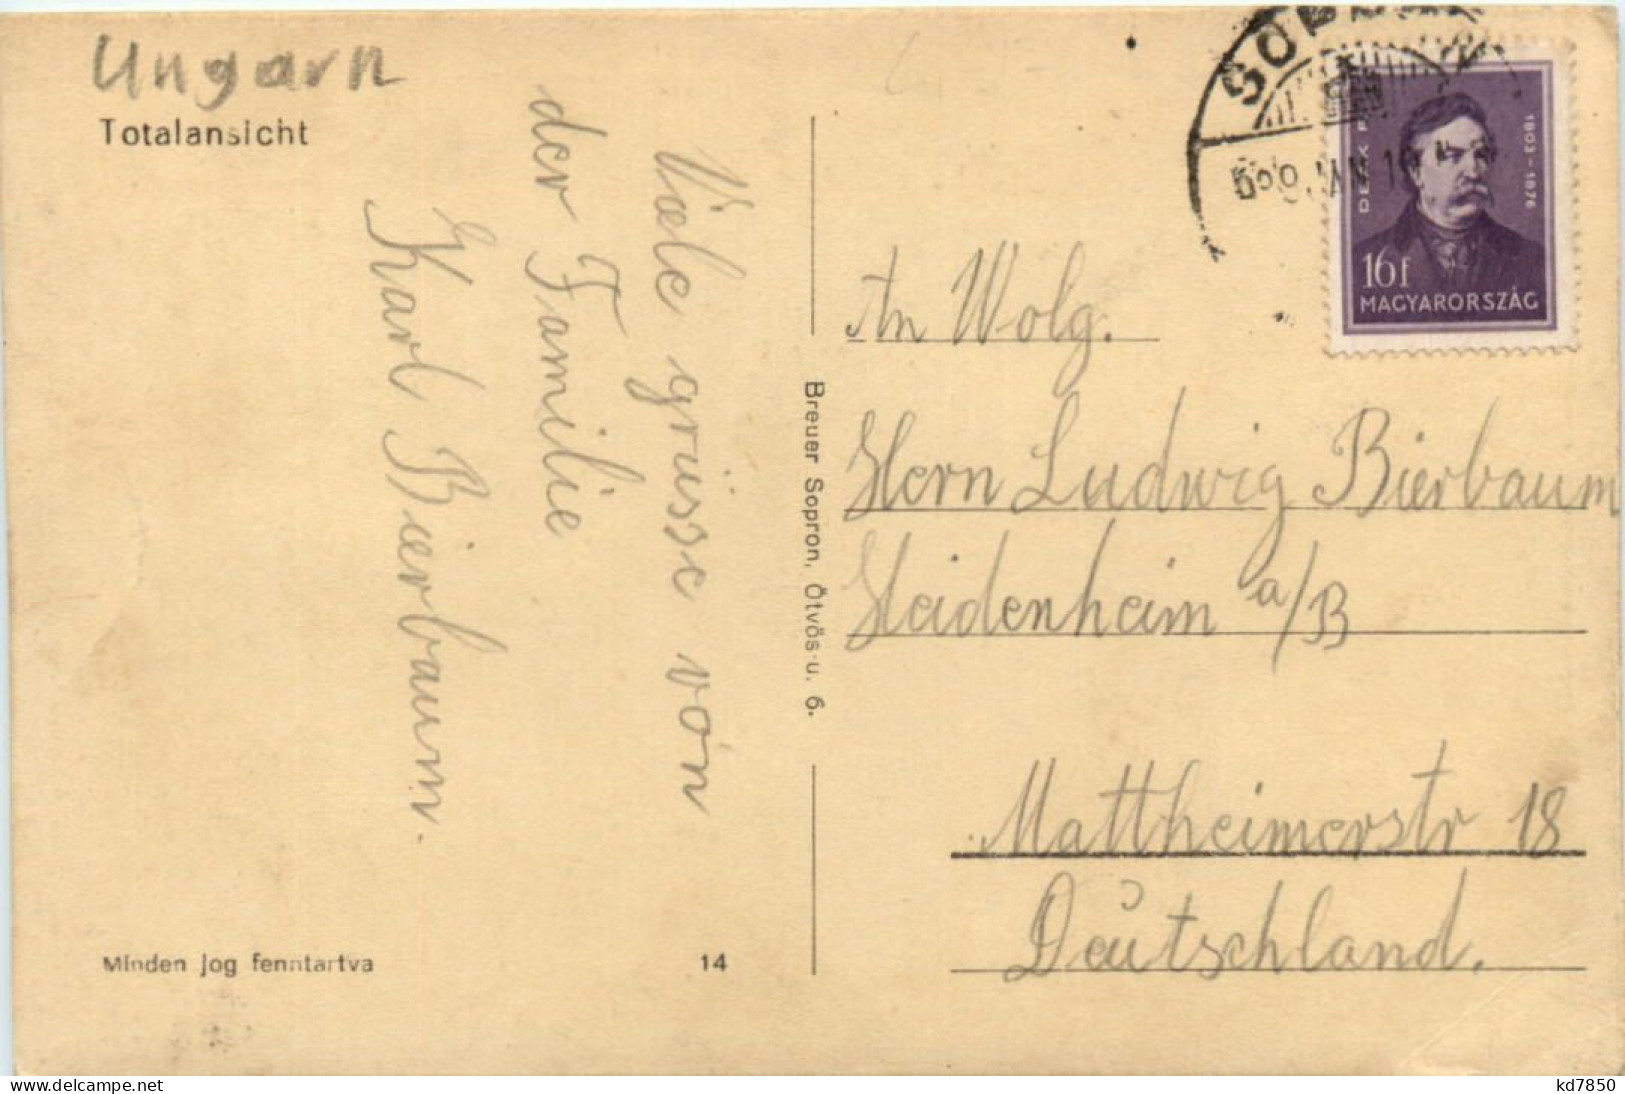 Ungarn
Totalansicht
Viele grüsse von
der Familie
Karl Bierbaum.
Minden jog fenntartva
14
Breuer Sopron, Ötvös-u. 6.
SOPRON
DEÁK F
1803-1876
16f
MAGYARORSZÁG
An Wolg.
Hern Ludwig Bierbaum
Heidenheim a/B
Mattheimerstr 18
Deutschland.
www.delcampe.net
kd7850